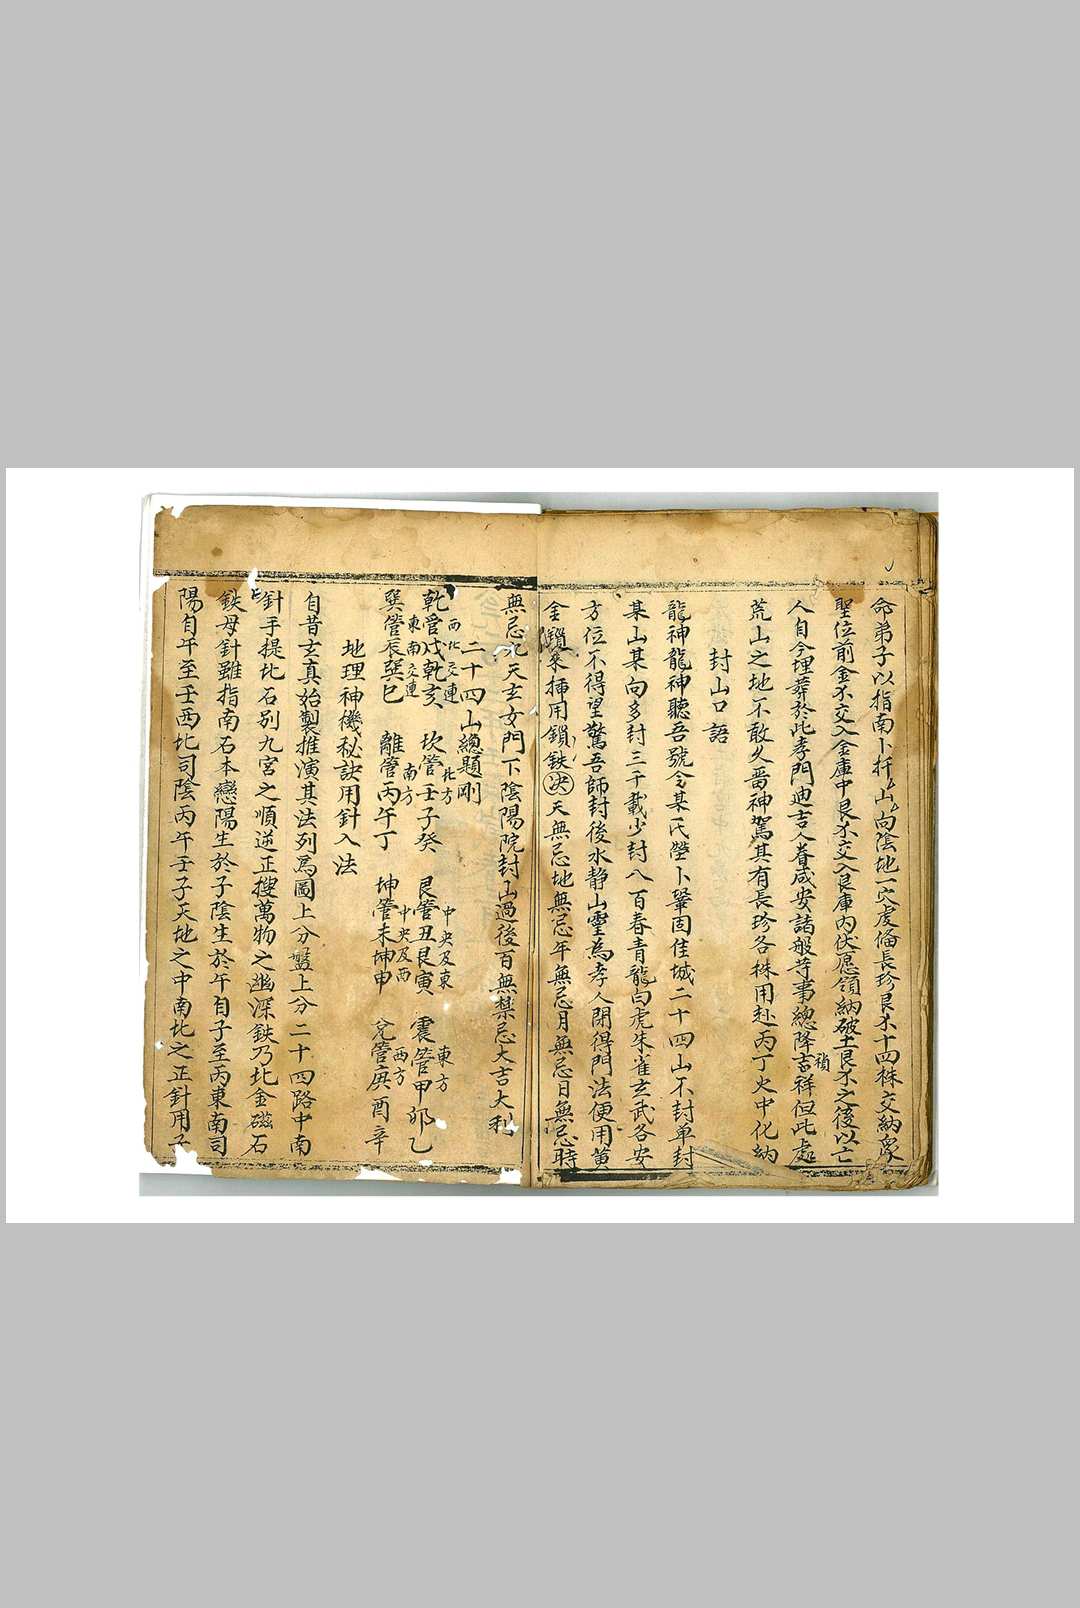 命弟子以指南卜扦山向陰地一穴虔俻長珍艮不十四株交納衆
聖位前金不交入金庫中艮不交入艮庫內伏愿領納破土艮不之後以亡
人自今埋葬於此孝門迪吉人眷咸安諸般等事總降吉祥但此處
禎
荒山之地不敢久畱神駕其有長珍各株用赴丙丁火中化納
封山口語
龍神龍神聽吾號令某氏塋卜鞏固佳城二十四山不封单封
某山某向多封三千載少封八百春青龍白虎朱雀玄武各安
方位不得望驚吾師封後水静山靈為孝人閉得門法便用黄
金鎖來揷用鎖鉄决天無忌地無忌年無忌月無忌日無忌時
無忌九天玄女門下陰陽院封山過後百無禁忌大吉大利
二十四山總題剛
西北交連 北方 中央及東 東方
乾管戌乾亥 坎管壬子癸 艮管丑艮寅 震管甲卯乙
東南交連 南方 中央及西 西方
巽管辰巽巳 離管丙午丁 坤管未坤申 兌管庚酉辛
地理神機秘訣用針入法
自昔玄真始製推演其法列爲圖上分盤上分二十四路中南
針手提北石别九宮之順逆正搜萬物之幽深鉄乃北金磁石
鉄母針雖指南石本戀陽生於子陰生於午自子至丙東南司
陽自午至壬西北司陰丙午壬子天地之中南北之正針用子